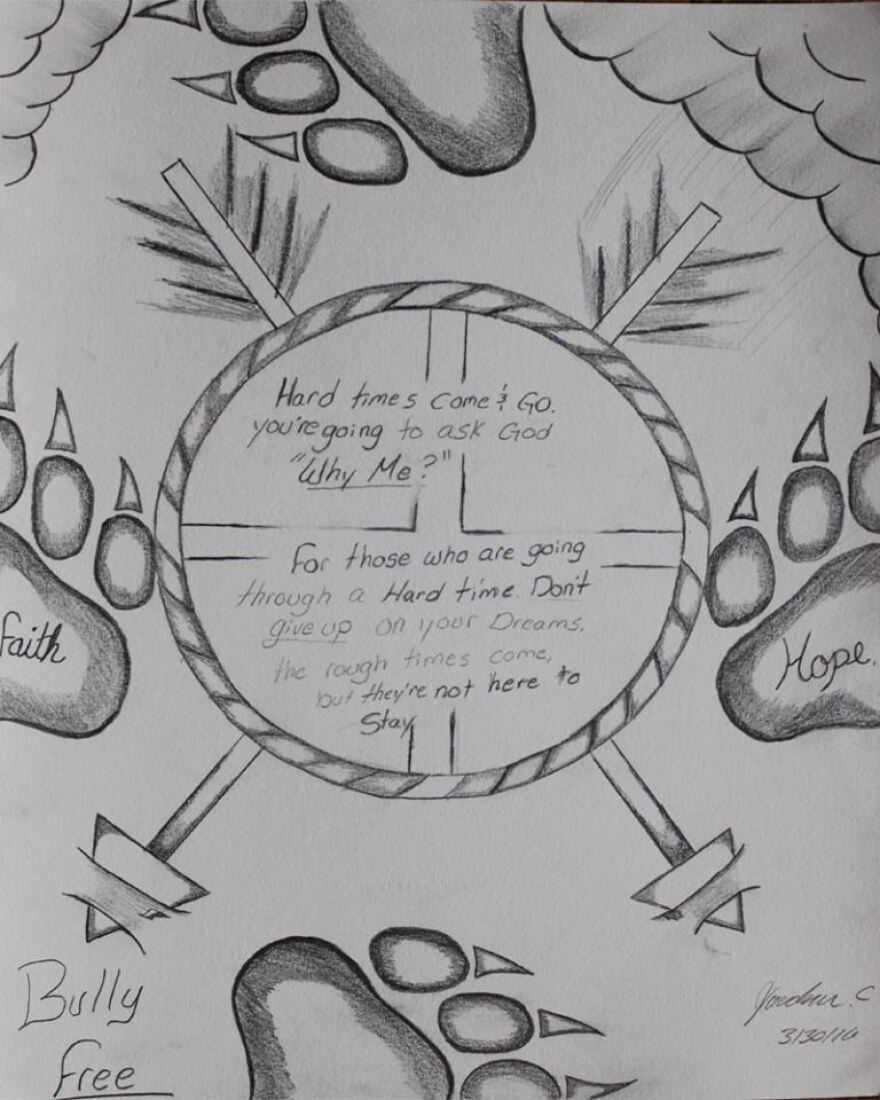 Hard times come & Go.
you're going to ask God
"Why Me?"
For those who are going
through a Hard time. Don't
give up on your Dreams.
the rough times come,
but they're not here to
Stay
Faith
Hope.
Bully
Free
Jordan. C
3/30/16